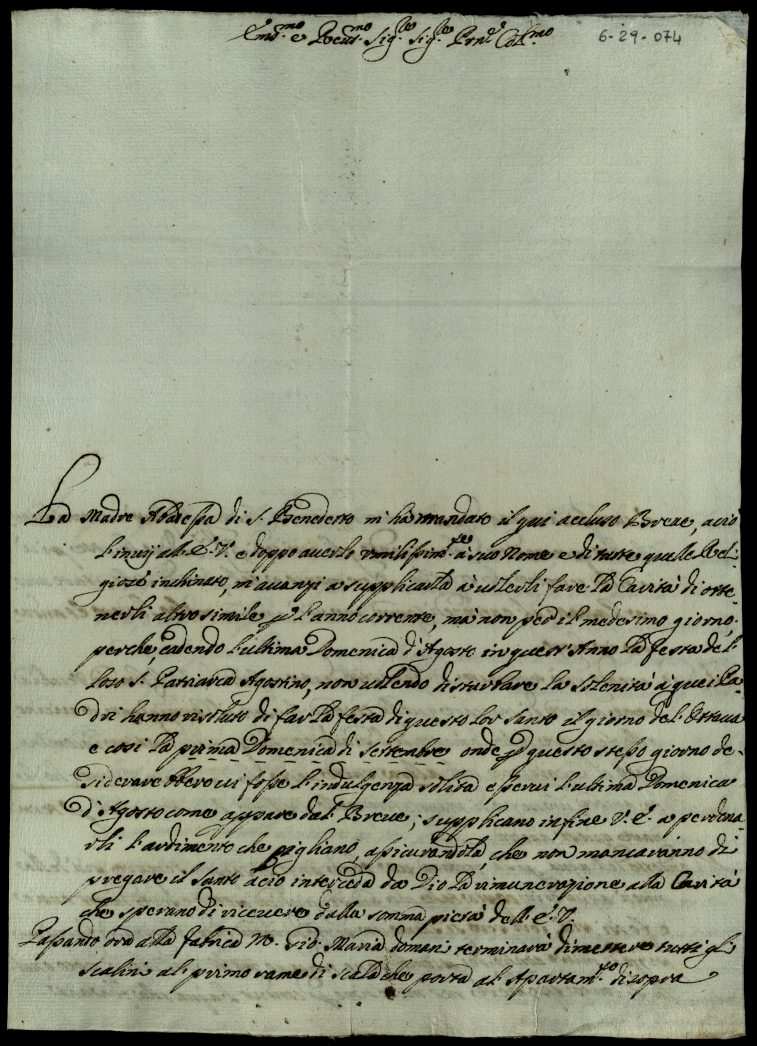 Em.mo e Reu.mo Sig.re Sig.re Prn.e Col.mo
6-29-074
La Madre Abadessa di S. Benedetto m'ha mandato il qui accluso Breue, acciò
l'inuij all'E. V. e doppo auerlo umilissim.te à suo nome e di tutte quelle Reli-
giose inchinato, m'auanzi a supplicarla à uolerli fare la Carità di otte-
nerli altro simile p l'anno corrente, mà non per il medesimo giorno,
perche, cadendo l'ultima Domenica d'Agosto in quest'Anno la festa del
loro S. Patriarca Agostino, non uolendo disturbare la solenità à quei Pa-
dri hanno risoluto di far la festa di questo lor Santo il giorno del Ottaua
e così la prima Domenica di Settembre onde p questo stesso giorno de-
siderarebbero ui fosse l'indulgenza solita esserui l'ultima Domenica
d'Agosto come appare dal Breue; supplicano in fine V. E. a perdona-
rli l'ardimento che pigliano, assicurandola, che non mancaranno di
pregare il Santo aciò interceda da Dio la rimunerazione alla Carità
che sperano di riceuere dalla somma pietà dell'E. V.
Passando ora alla fabrica M. Gio. Maria domani terminarà di mettere tutti gli
scalini al primo rame di scala che porta al Apartam.to di sopra